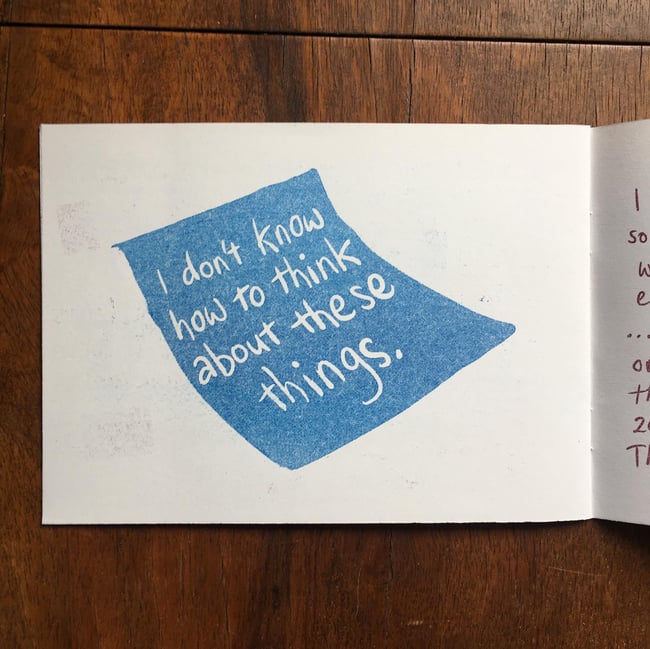 I don't know
how to think
about these
things.
I
so